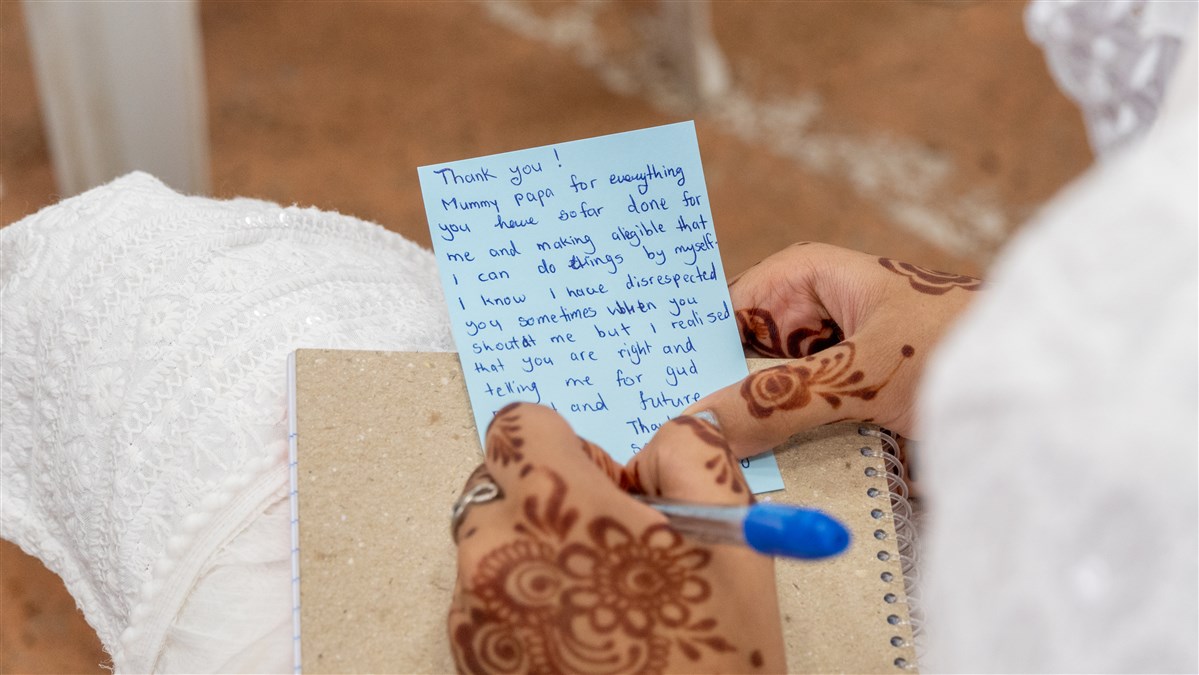 Thank you !
Mummy papa for everything
you have sofar done for
me and making alegible that
I can do things by myself.
I know I have disrespected
you sometimes when you
shout at me but I realised
that you are right and
telling me for gud
and future